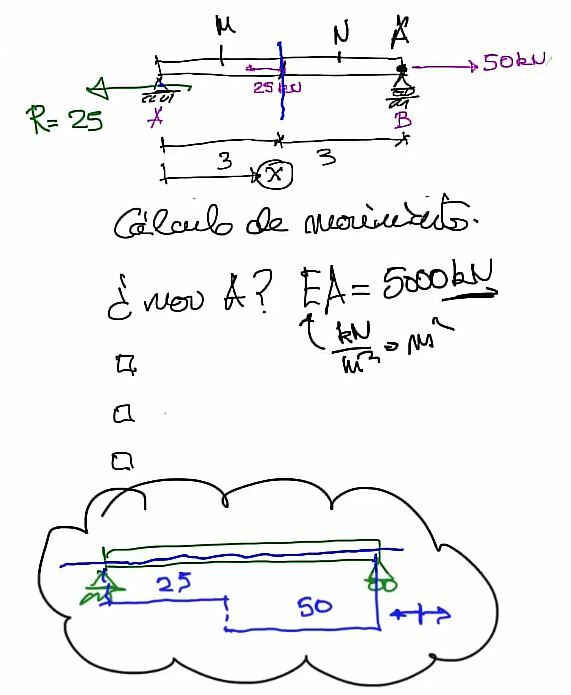 M N A
50kN
25 kN
R= 25
A B
3 3
x
Cálculo de movimiento.
¿mov A? EA = 5000kN
kN/m² · m²
25
50